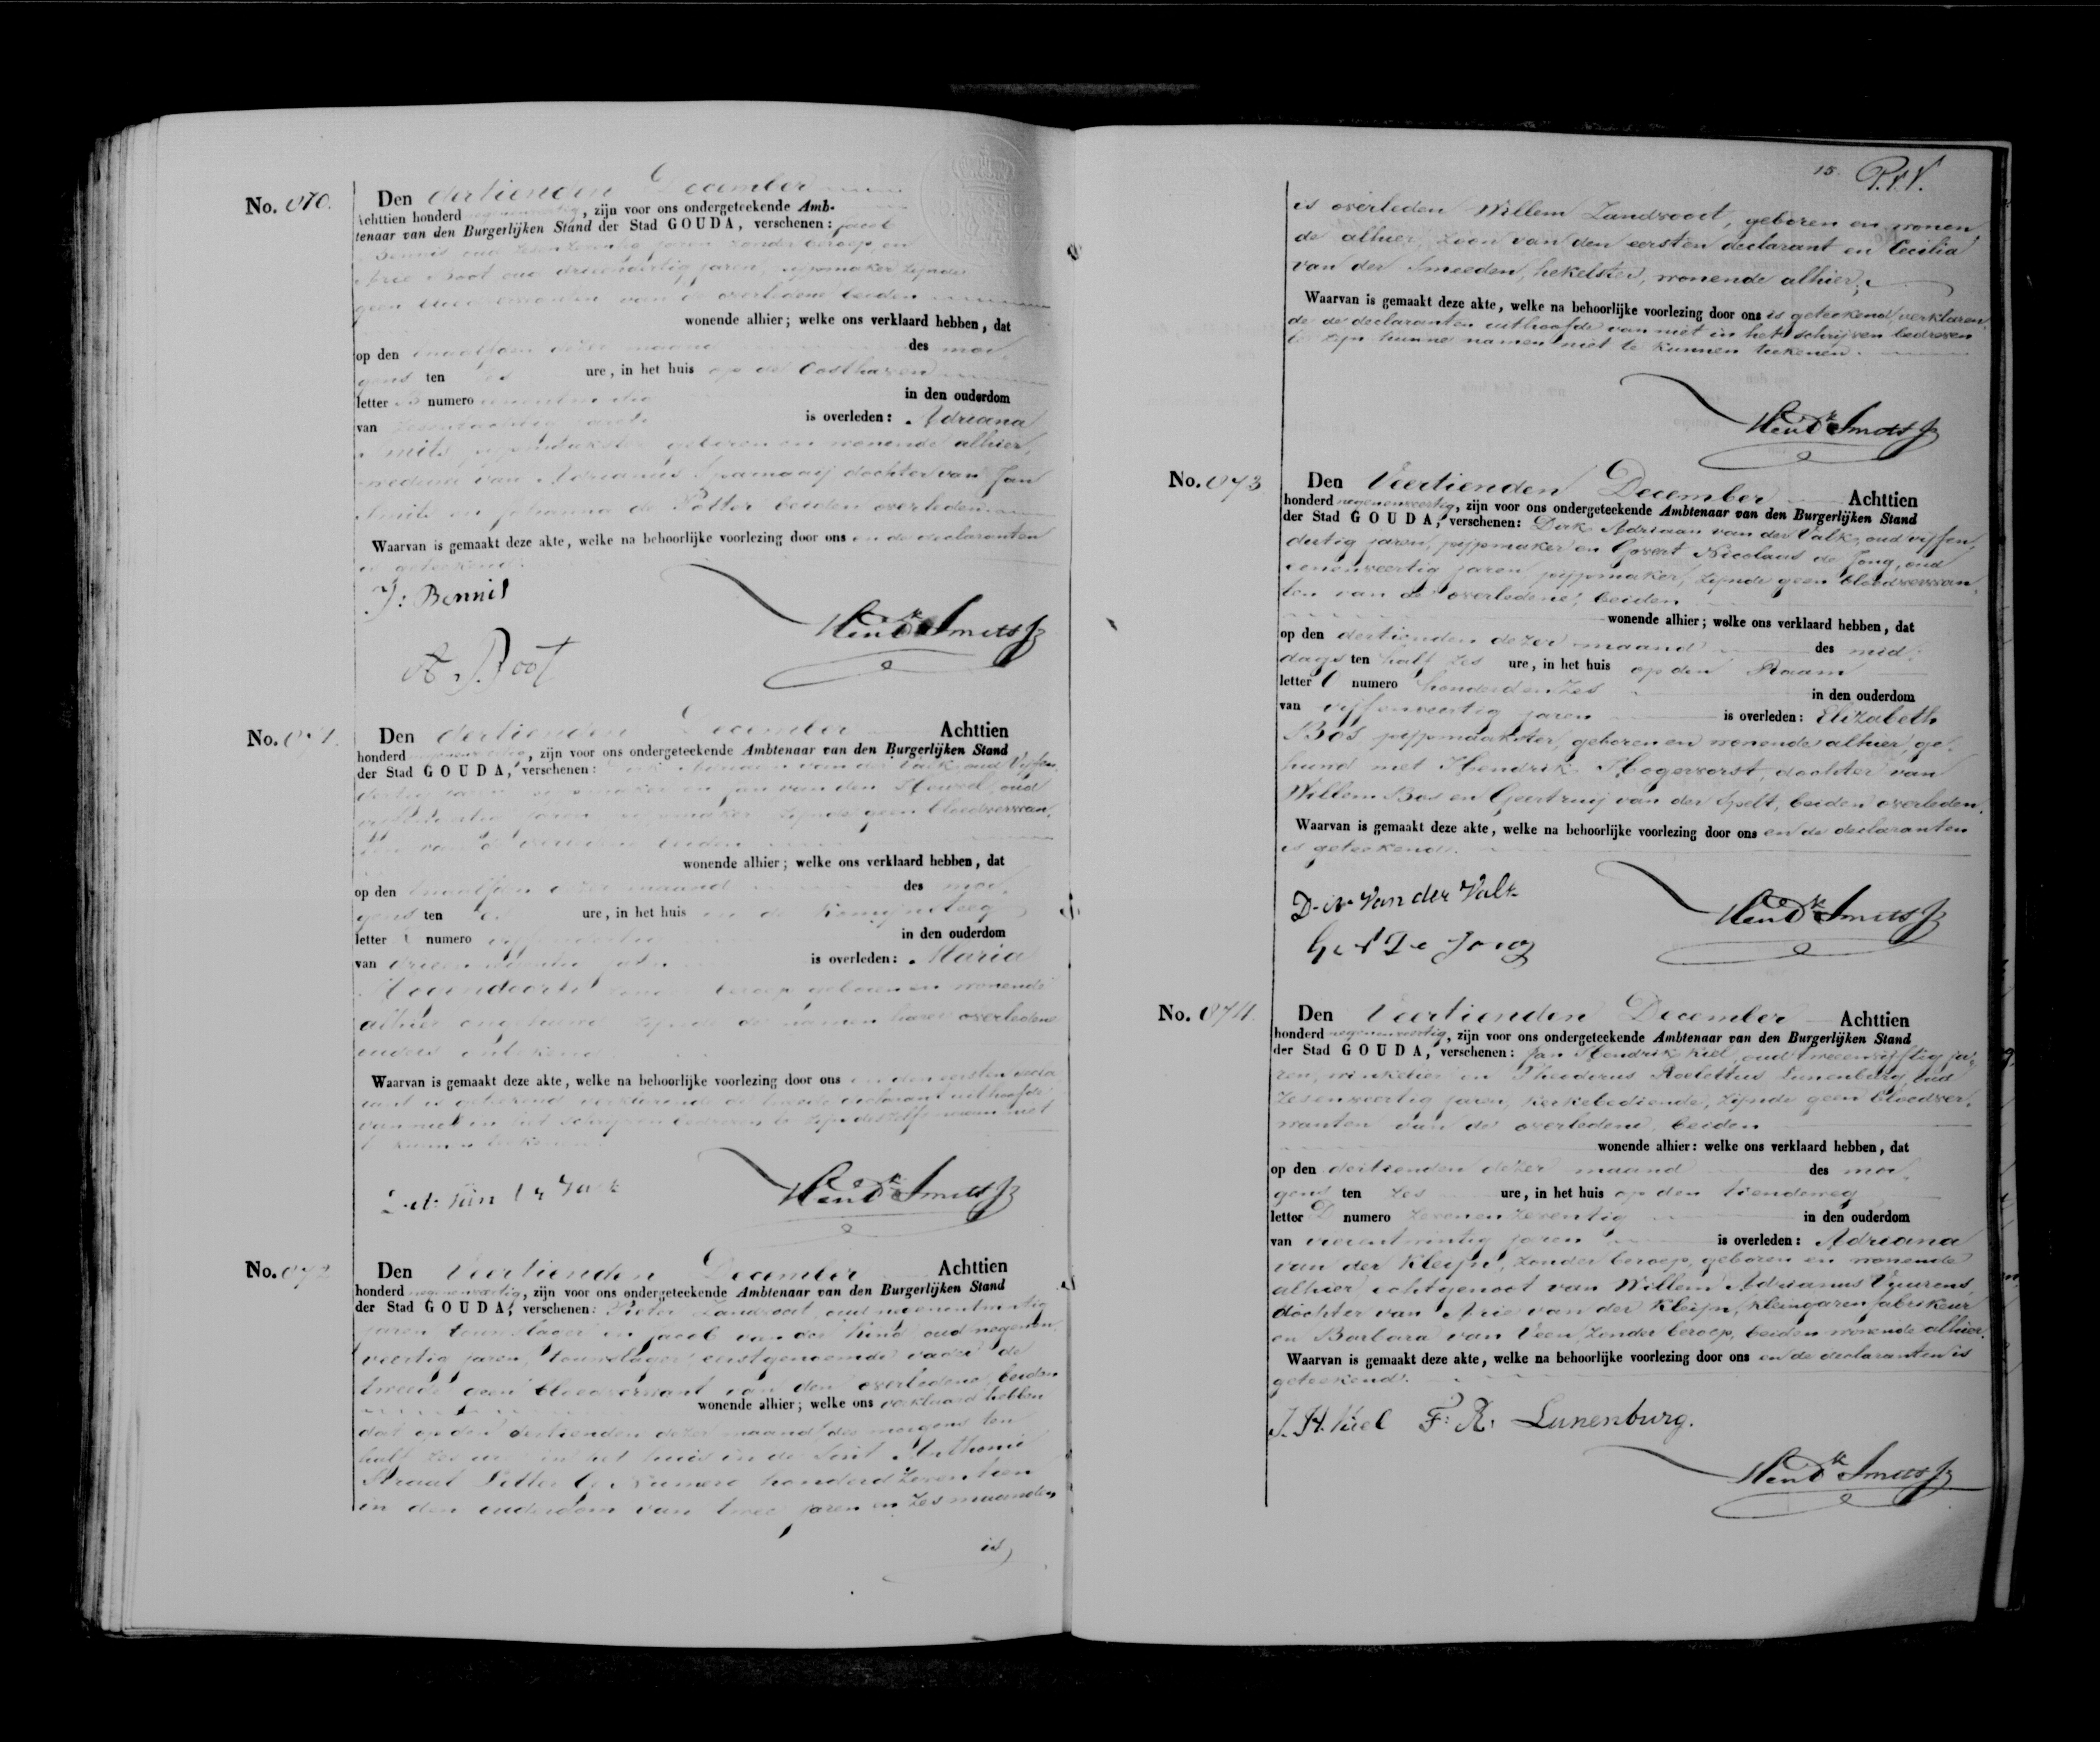 No. 870.
Den dertienden December
Achttien honderd negenenveertig, zijn voor ons ondergeteekende Amb-
tenaar van den Burgerlijken Stand der Stad GOUDA, verschenen: Jacob
Bennis oud zesenzeventig jaren zonder beroep en
Arie Boot oud drieendertig jaren, pijpmaker zijnde
geen bloedverwanten van de overledene beiden
wonende alhier; welke ons verklaard hebben, dat
op den twaalfden dezer maand des mor-
gens ten ure, in het huis op de Oosthaven
letter B numero in den ouderdom
van zesentachtig jaren is overleden: Adriana
Smits geboren en wonende alhier,
weduwe van Adrianus Spamaaij dochter van Jan
Smits en Johanna de Potter beiden overleden
Waarvan is gemaakt deze akte, welke na behoorlijke voorlezing door ons en de declaranten
is geteekend.
J: Bennis
A. Boot
Hend.k Smits Jz
No. 871.
Den dertienden December Achttien
honderd negenenveertig, zijn voor ons ondergeteekende Ambtenaar van den Burgerlijken Stand
der Stad GOUDA, verschenen: Dirk Adriaan van der Valk, oud vijfen-
dertig jaren pijpmaker en Jan van den Heuvel, oud
jaren, pijpmaker zijnde geen bloedverwan-
ten van de overledene beiden
wonende alhier; welke ons verklaard hebben, dat
op den twaalfden dezer maand des mor-
gens ten ure, in het huis in de Komijnsteeg
letter numero in den ouderdom
van jaren is overleden: Maria
Hogendoorn zonder beroep geboren en wonende
alhier ongehuwd zijnde de namen harer overledene
ouders onbekend
Waarvan is gemaakt deze akte, welke na behoorlijke voorlezing door ons en den eersten decla
rant is geteekend verklarende de tweede declarant uithoofde
van niet in het schrijven bedreven te zijn deszelfs naam niet
te kunnen teekenen
D. A. van der Valk
Hend.k Smits Jz
No. 872
Den Veertienden December Achttien
honderd negenenveertig, zijn voor ons ondergeteekende Ambtenaar van den Burgerlijken Stand
der Stad GOUDA, verschenen: Pieter Zandvoort, oud negenentwintig
jaren touwslager en Jacob van der Kind oud negenen-
veertig jaren, touwslager, eerstgenoemde vader de
tweede geen bloedverwant van den overledene, beiden
wonende alhier; welke ons verklaard hebben
dat op den dertienden dezer maand des morgens ten
half zes ure in het huis in de Sint Anthonie
Straat Letter G Numero honderd zeventien
in den ouderdom van twee jaren en zes maanden
is
15. P.V.V.
is overleden Willem Zandvoort, geboren en wonen
de alhier, zoon van den eersten declarant en Cecilia
van der Smeeden, hekelster, wonende alhier;
Waarvan is gemaakt deze akte, welke na behoorlijke voorlezing door ons is geteekend, verklaren
de de declaranten uithoofde van niet in het schrijven bedreven
te zijn hunne namen niet te kunnen teekenen.
Hend.k Smits Jz
No. 873
Den Veertienden December Achttien
honderd negenenveertig, zijn voor ons ondergeteekende Ambtenaar van den Burgerlijken Stand
der Stad GOUDA, verschenen: Dirk Adriaan van der Valk, oud vijfen-
dertig jaren, pijpmaker en Govert Nicolaas de Jong, oud
eenenveertig jaren pijpmaker, zijnde geen bloedverwan-
ten van de overledene, beiden
wonende alhier; welke ons verklaard hebben, dat
op den dertienden dezer maand des mid-
dags ten half zes ure, in het huis op den Raam
letter O numero honderdenzes in den ouderdom
van vijfenveertig jaren is overleden: Elizabeth
Bos pijpmaakster, geboren en wonende alhier, ge-
huwd met Hendrik Hogervorst, dochter van
Willem Bos en Geertruij van der Spelt, beiden overleden.
Waarvan is gemaakt deze akte, welke na behoorlijke voorlezing door ons en de declaranten
is geteekend.
D. A. Van der Valk
G. N. De Jong
Hend.k Smits Jz
No. 874.
Den Veertienden December Achttien
honderd negenenveertig, zijn voor ons ondergeteekende Ambtenaar van den Burgerlijken Stand
der Stad GOUDA, verschenen: Jan Hendrik Kiel, oud tweeenvijftig ja-
ren, winkelier en Theodorus Lunenburg, oud
zesenveertig jaren, kerkebediende, zijnde geen bloedver-
wanten van de overledene, beiden
wonende alhier: welke ons verklaard hebben, dat
op den dertienden dezer maand des mor-
gens ten zes ure, in het huis op den tiendeweg
letter D numero zevenenzeventig in den ouderdom
van vierentwintig jaren is overleden: Adriana
van der Kleijn, zonder beroep, geboren en wonende
alhier, echtgenoot van Willem Adrianus Vuurens,
dochter van Arie van der Kleijn, kleingarenfabrikeur
en Barbara van Veen, zonder beroep, beiden wonende alhier.
Waarvan is gemaakt deze akte, welke na behoorlijke voorlezing door ons en de declaranten is
geteekend.
J. H. Kiel F: R: Lunenburg.
Hend.k Smits Jz